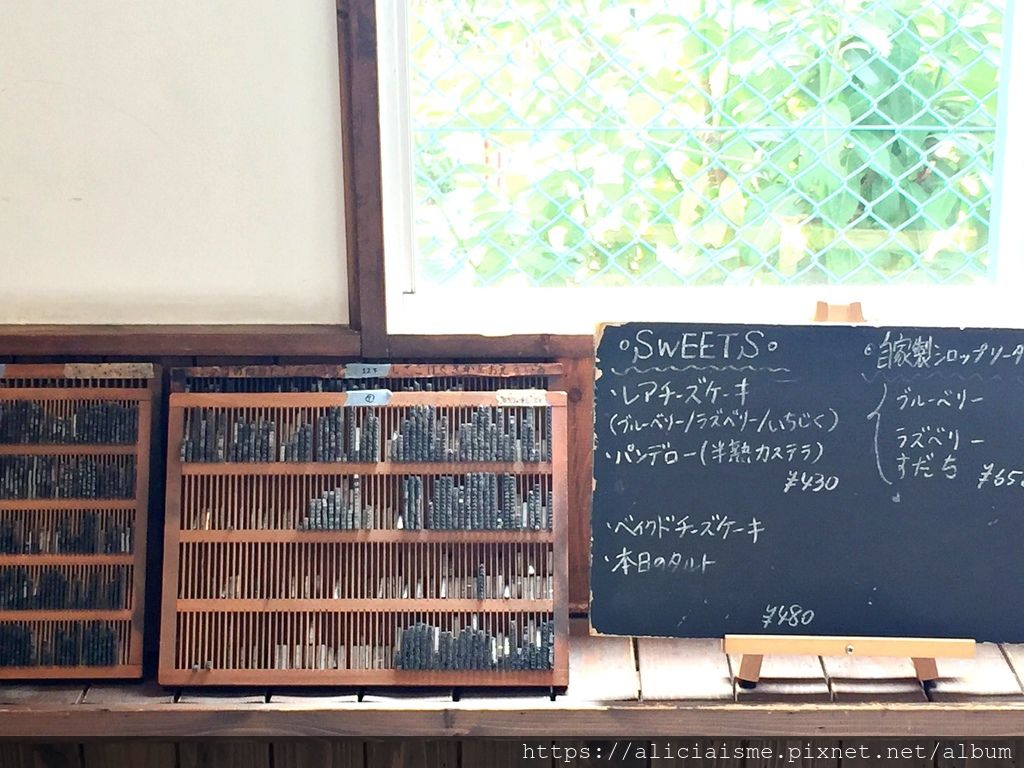 SWEETS
・レアチーズケーキ
(ブルーベリー/ラズベリー/いちじく)
・パンデロー(半熟カステラ)
¥430
・ベイクドチーズケーキ
・本日のタルト
¥480
自家製シロップソーダ
ブルーベリー
ラズベリー
すだち
¥650
https://aliciaisme.pixnet.net/album